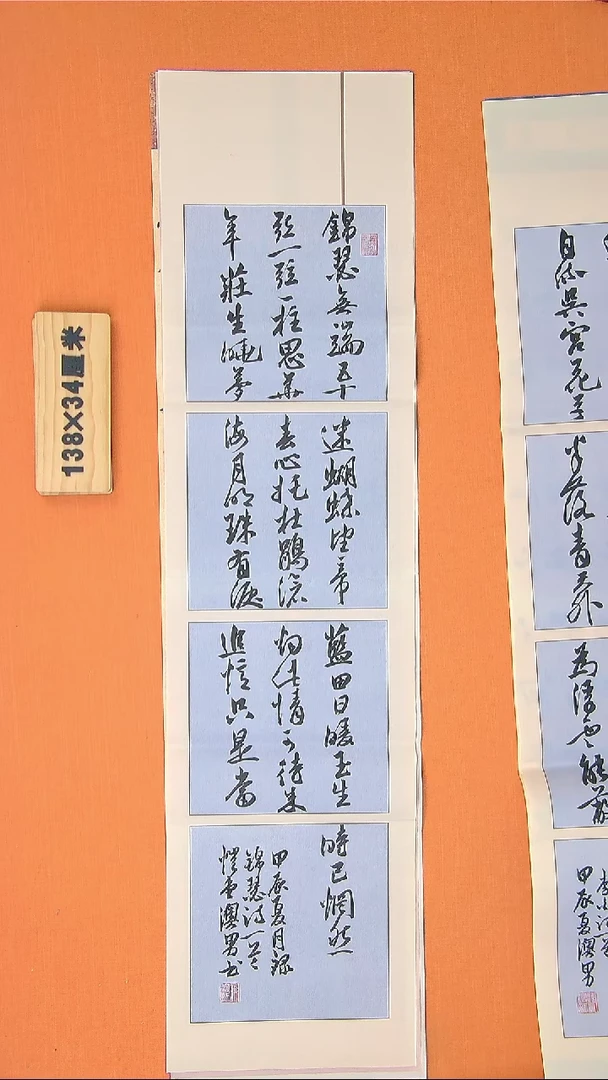 138X34厘米
錦瑟無端五十
弦一弦一柱思華
年莊生曉夢
迷蝴蝶望帝
春心托杜鵑滄
海月明珠有淚
藍田日暖玉生
烟此情可待成
追憶只是當
時已惘然
甲辰夏月錄
錦瑟詩一首
堂澳男书
自流吳宮花草
半落青天外
為浮雲能蔽
甲辰夏澳男